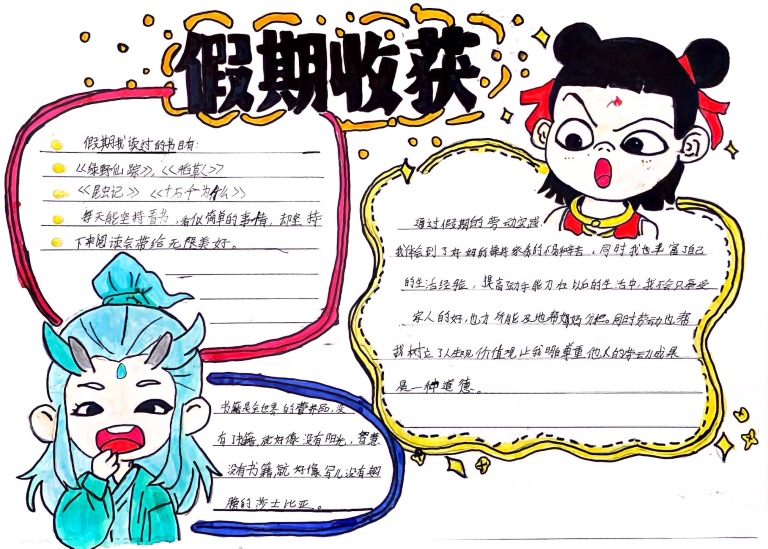 假期收获
假期我读过的书目有:
《绿野仙踪》,《稻草人》
《昆虫记》 《十万个为什么》
每天能坚持看书,看似简单的事情,却坚持
下来阅读会带给无限美好。
通过假期的劳动实践
我体会到了妈妈的操持家务的不易和辛苦,同时我也丰富了自己
的生活经验,提高动手能力在以后的生活中,我不会只享受
家人的好,也力所能及地帮妈妈分担同时劳动也帮
我树立了人生观价值观让我明白尊重他人的劳动成果
是一种道德。
书籍是全世界的营养品,没
有书籍就好像没有阳光,智慧
没有书籍就好像鸟儿没有翅
膀的莎士比亚。